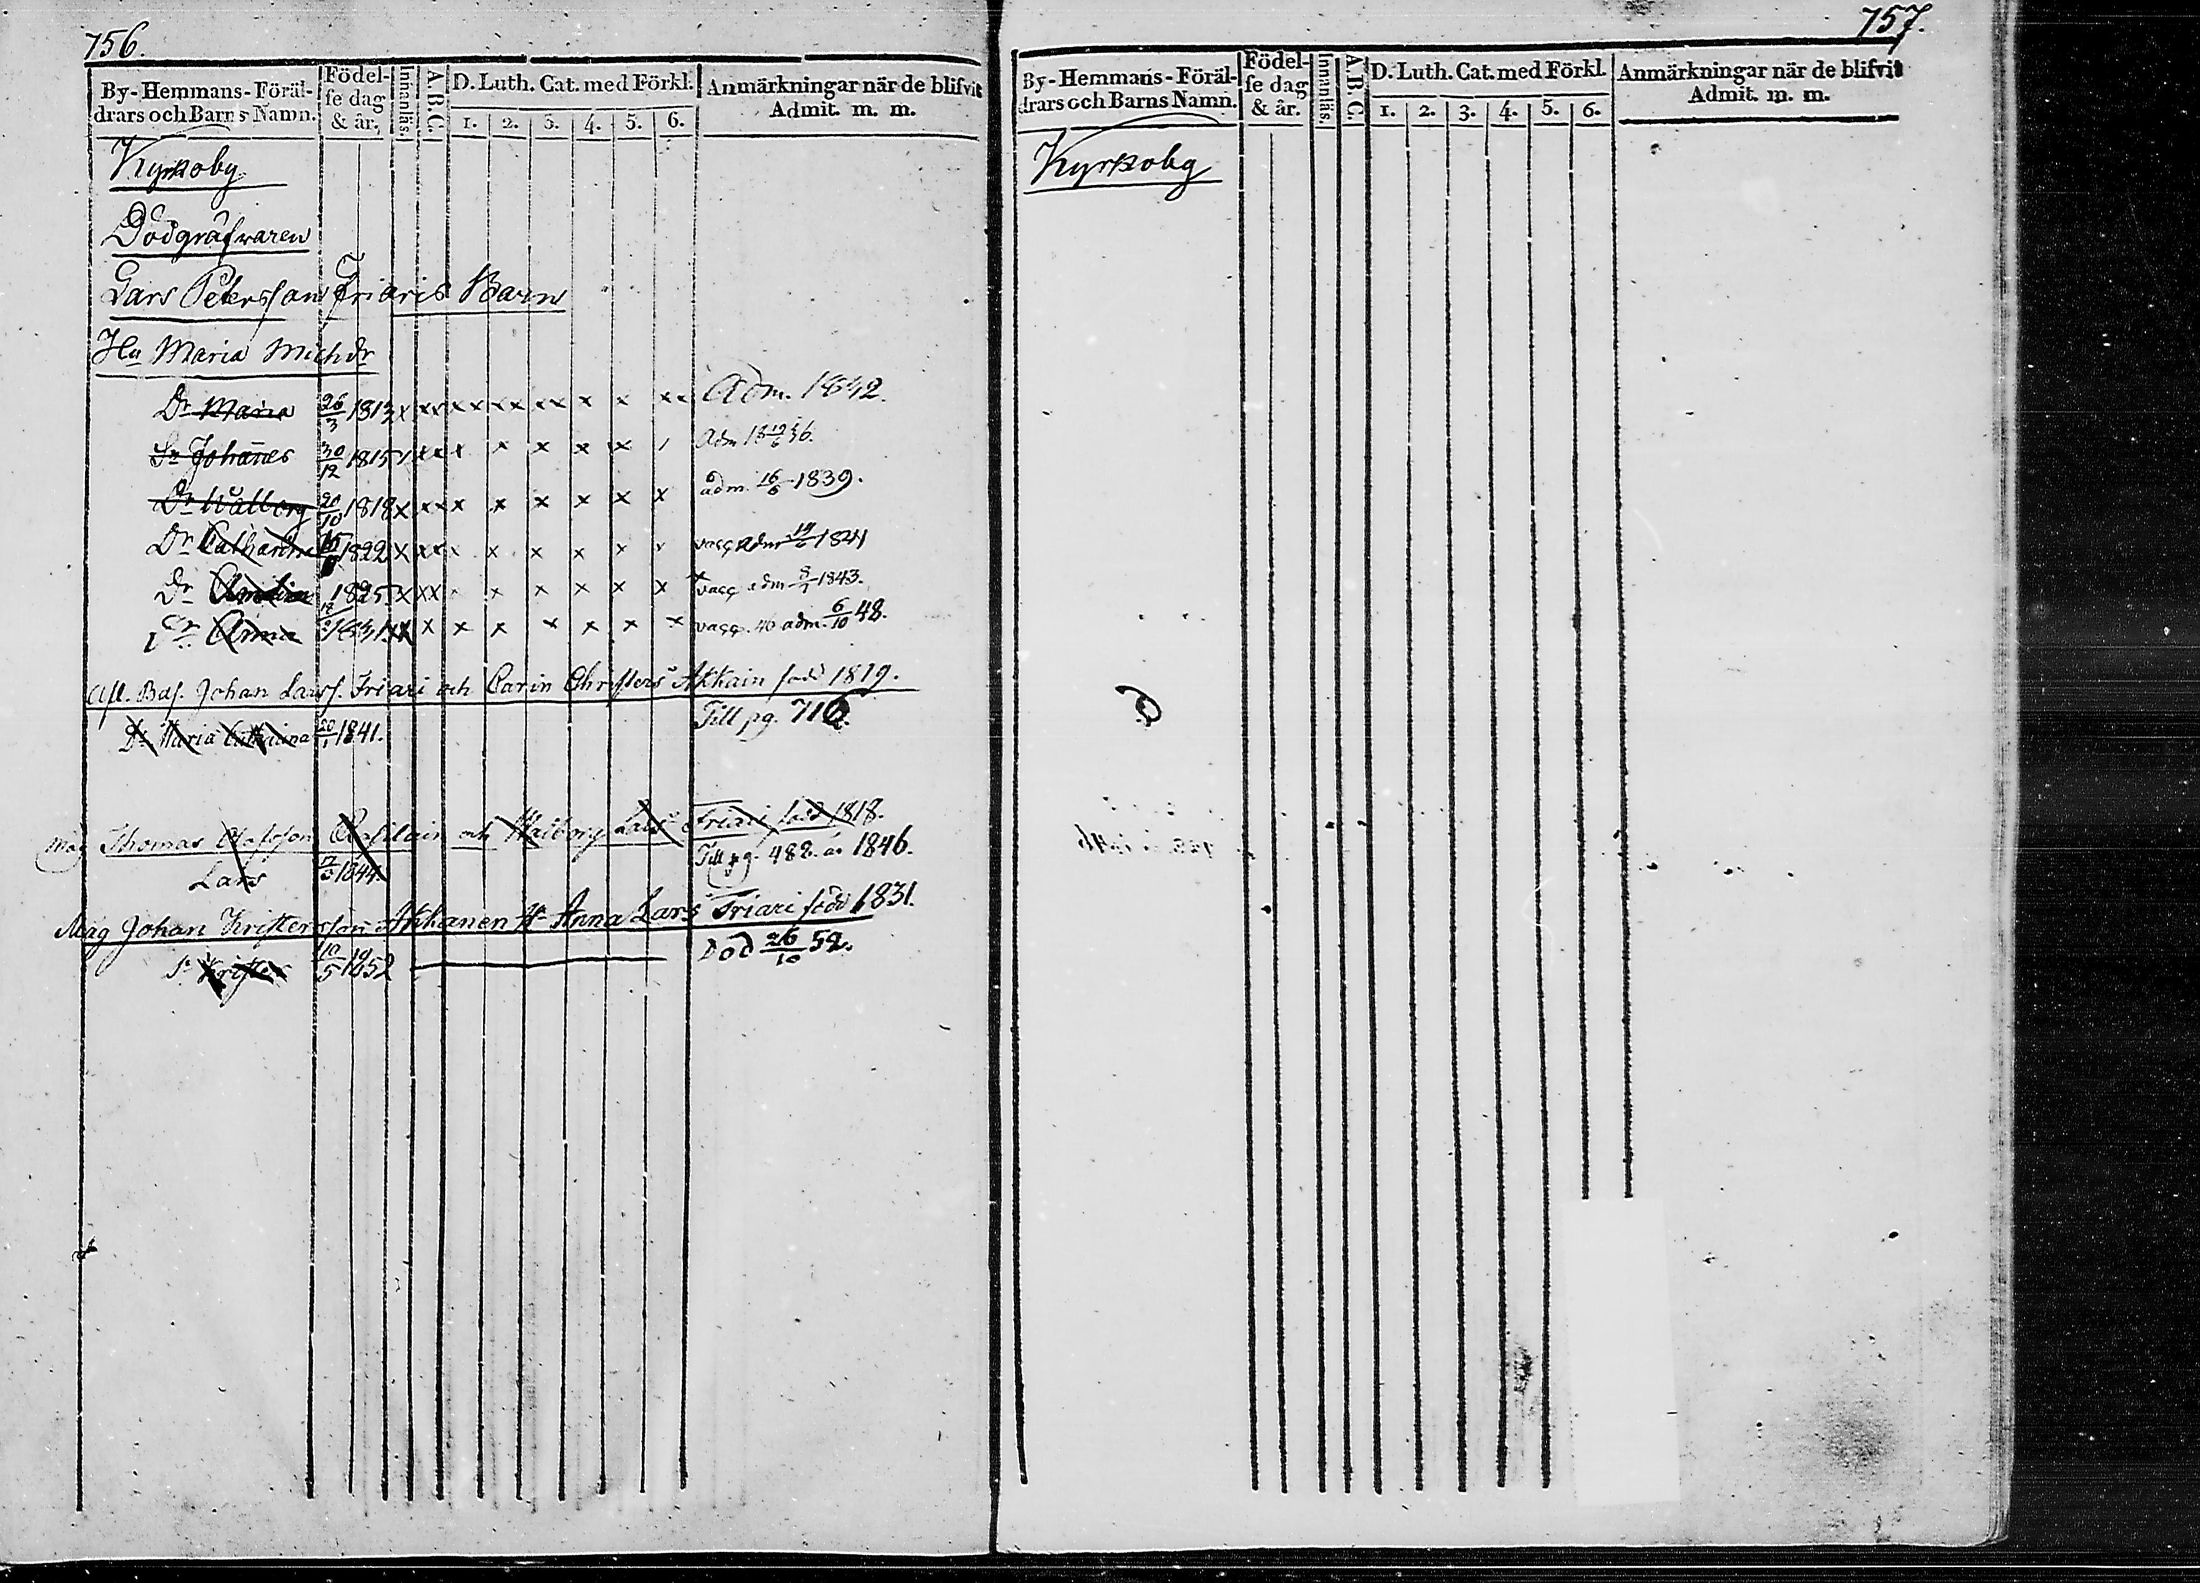 756.
By-Hemmans-Föräl-
drars och Barns Namn.
Födel-
se dag
& år.
Innanläs.
A.B.C.
D. Luth. Cat. med Förkl.
1. 2. 3. 4. 5. 6.
Anmärkningar när de blifvit
Admit. m. m.
Kyrkoby
Dödgräfvaren
Lars Petersson Friaris Barn
Hu Maria Michdr
Dr Maria 26/3 1813 x xx xx xx xx x x xx Adm. 1832.
Sn Johannes 30/12 1815 x x x x x Adm 18 19/6 36.
Dr Walborg 20/10 1818 x xx x x x x x x adm. 16/6 1839.
Dr Catharina 1822 x xx x x x x x vacc adm 14/6 1841
Dr 1825 x xx x x x x x vacc adm 1843.
Dr Anna 1831 x x x x x x x x vacc. adm. 6/10 48.
Johan Larss. Friari och Carin Christers Akkain född 1819.
Dr Maria Catharina 20/1 1841. Till pg. 716.
Mag Thomas och Walborg Lars Friari född 1818.
Lars 1844. Till pg. 482. år 1846.
Mag Johan Kristersson Akkanen H Anna Lars Friari född 1831.
Sn Krister 10/5 1852 Död 26/10 52.
757.
By-Hemmans-Föräl-
drars och Barns Namn.
Födel-
se dag
& år.
Innanläs.
A.B.C.
D. Luth. Cat. med Förkl.
1. 2. 3. 4. 5. 6.
Anmärkningar när de blifvit
Admit. m. m.
Kyrkoby